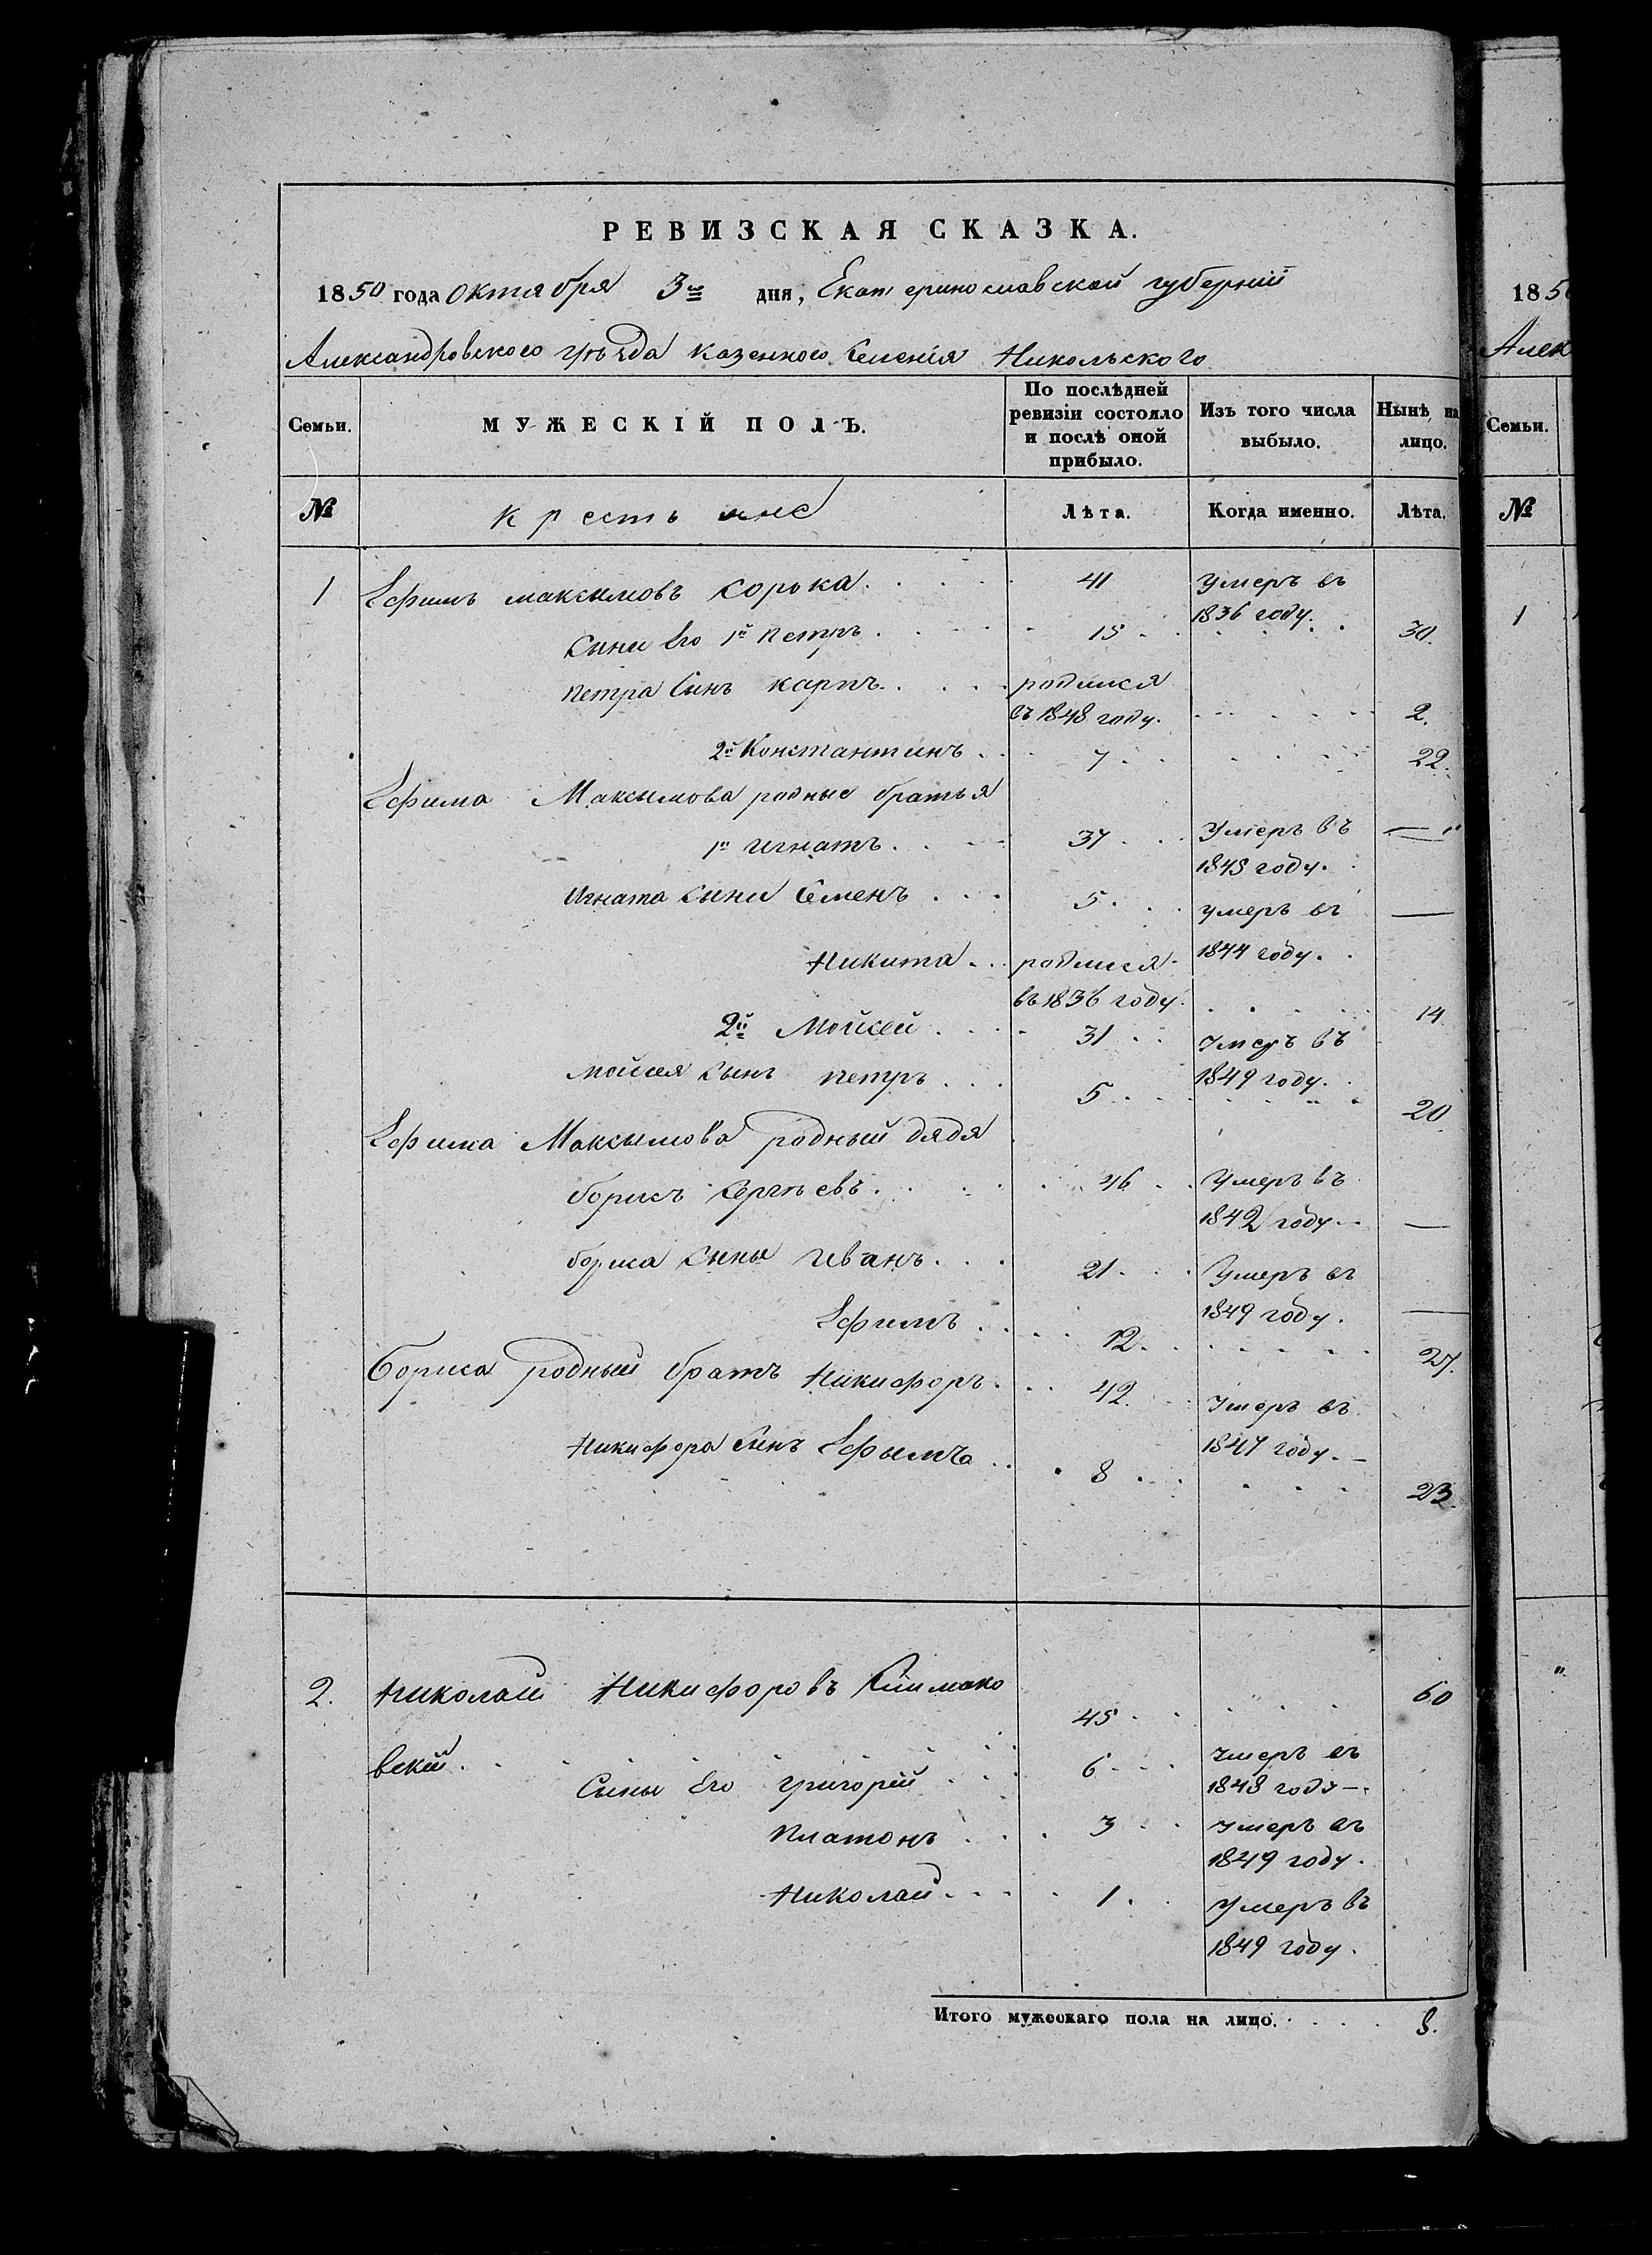 РЕВИЗСКАЯ СКАЗКА.
1850 года Октября 3го дня, Екатеринославской губерніи
Александровского уѣзда казенного Селенія Никольского
Семьи. МУЖЕСКІЙ ПОЛЪ. По послѣдней ревизіи состояло и послѣ оной прибыло. Изъ того числа выбыло. Нынѣ на лицо.
№ крестьяне Лѣта. Когда именно. Лѣта.
1 Ефимъ максимовъ сорока 41 умеръ въ
1836 году.
Сыни Его 1й петръ 15 30.
петра Синъ карпъ родился
въ 1848 году. 2.
2й Константинъ 7 22.
Ефима Максимова родные братья
1й игнатъ 37 Умеръ въ —
1845 году.
Игната Сыни Семенъ 5 умеръ въ —
1844 году.
Никита родился
въ 1836 году. 14
2й Мойсей 31 Умеръ въ
1849 году.
Мойсея Сынъ петръ 5 20
Ефима Максимова родный дядя
борисъ Сергѣевъ 46 Умеръ въ
1842 году —
бориса Сыны иванъ 21 Умеръ въ
1849 году. —
Ефимъ 12. 27.
бориса родный братъ Никифоръ 42. Умеръ въ
1847 году.
Никифора Синъ Ефымъ 8 23.
2. Николай Никифоровъ Климако
вскій. 45 60
Сыны Его григорій 6 умеръ въ
1848 году
платонъ 3 умеръ въ
1849 году.
Николай 1. Умеръ въ
1849 году.
Итого мужескаго пола на лицо. 8.
1850
Алек
Семьи.
№
1
"